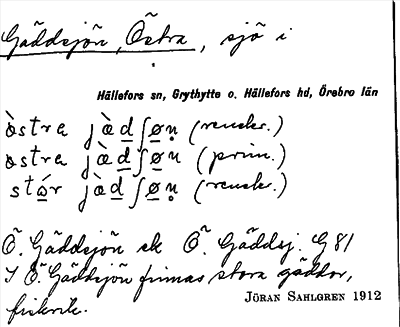 Gäddsjön, Östra, sjö i
Hällefors sn, Grythytte o. Hällefors hd, Örebro län
òstra jæ̀dʃøn (renskr.)
østra jæ̀dʃøn (prim.)
stór jæ̀dʃøn (renskr.)
Ö. Gäddsjön ek Ö. Gäddsj. G 81
I Ö. Gäddsjön finnas stora gäddor,
fiskrik.
JÖRAN SAHLGREN 1912